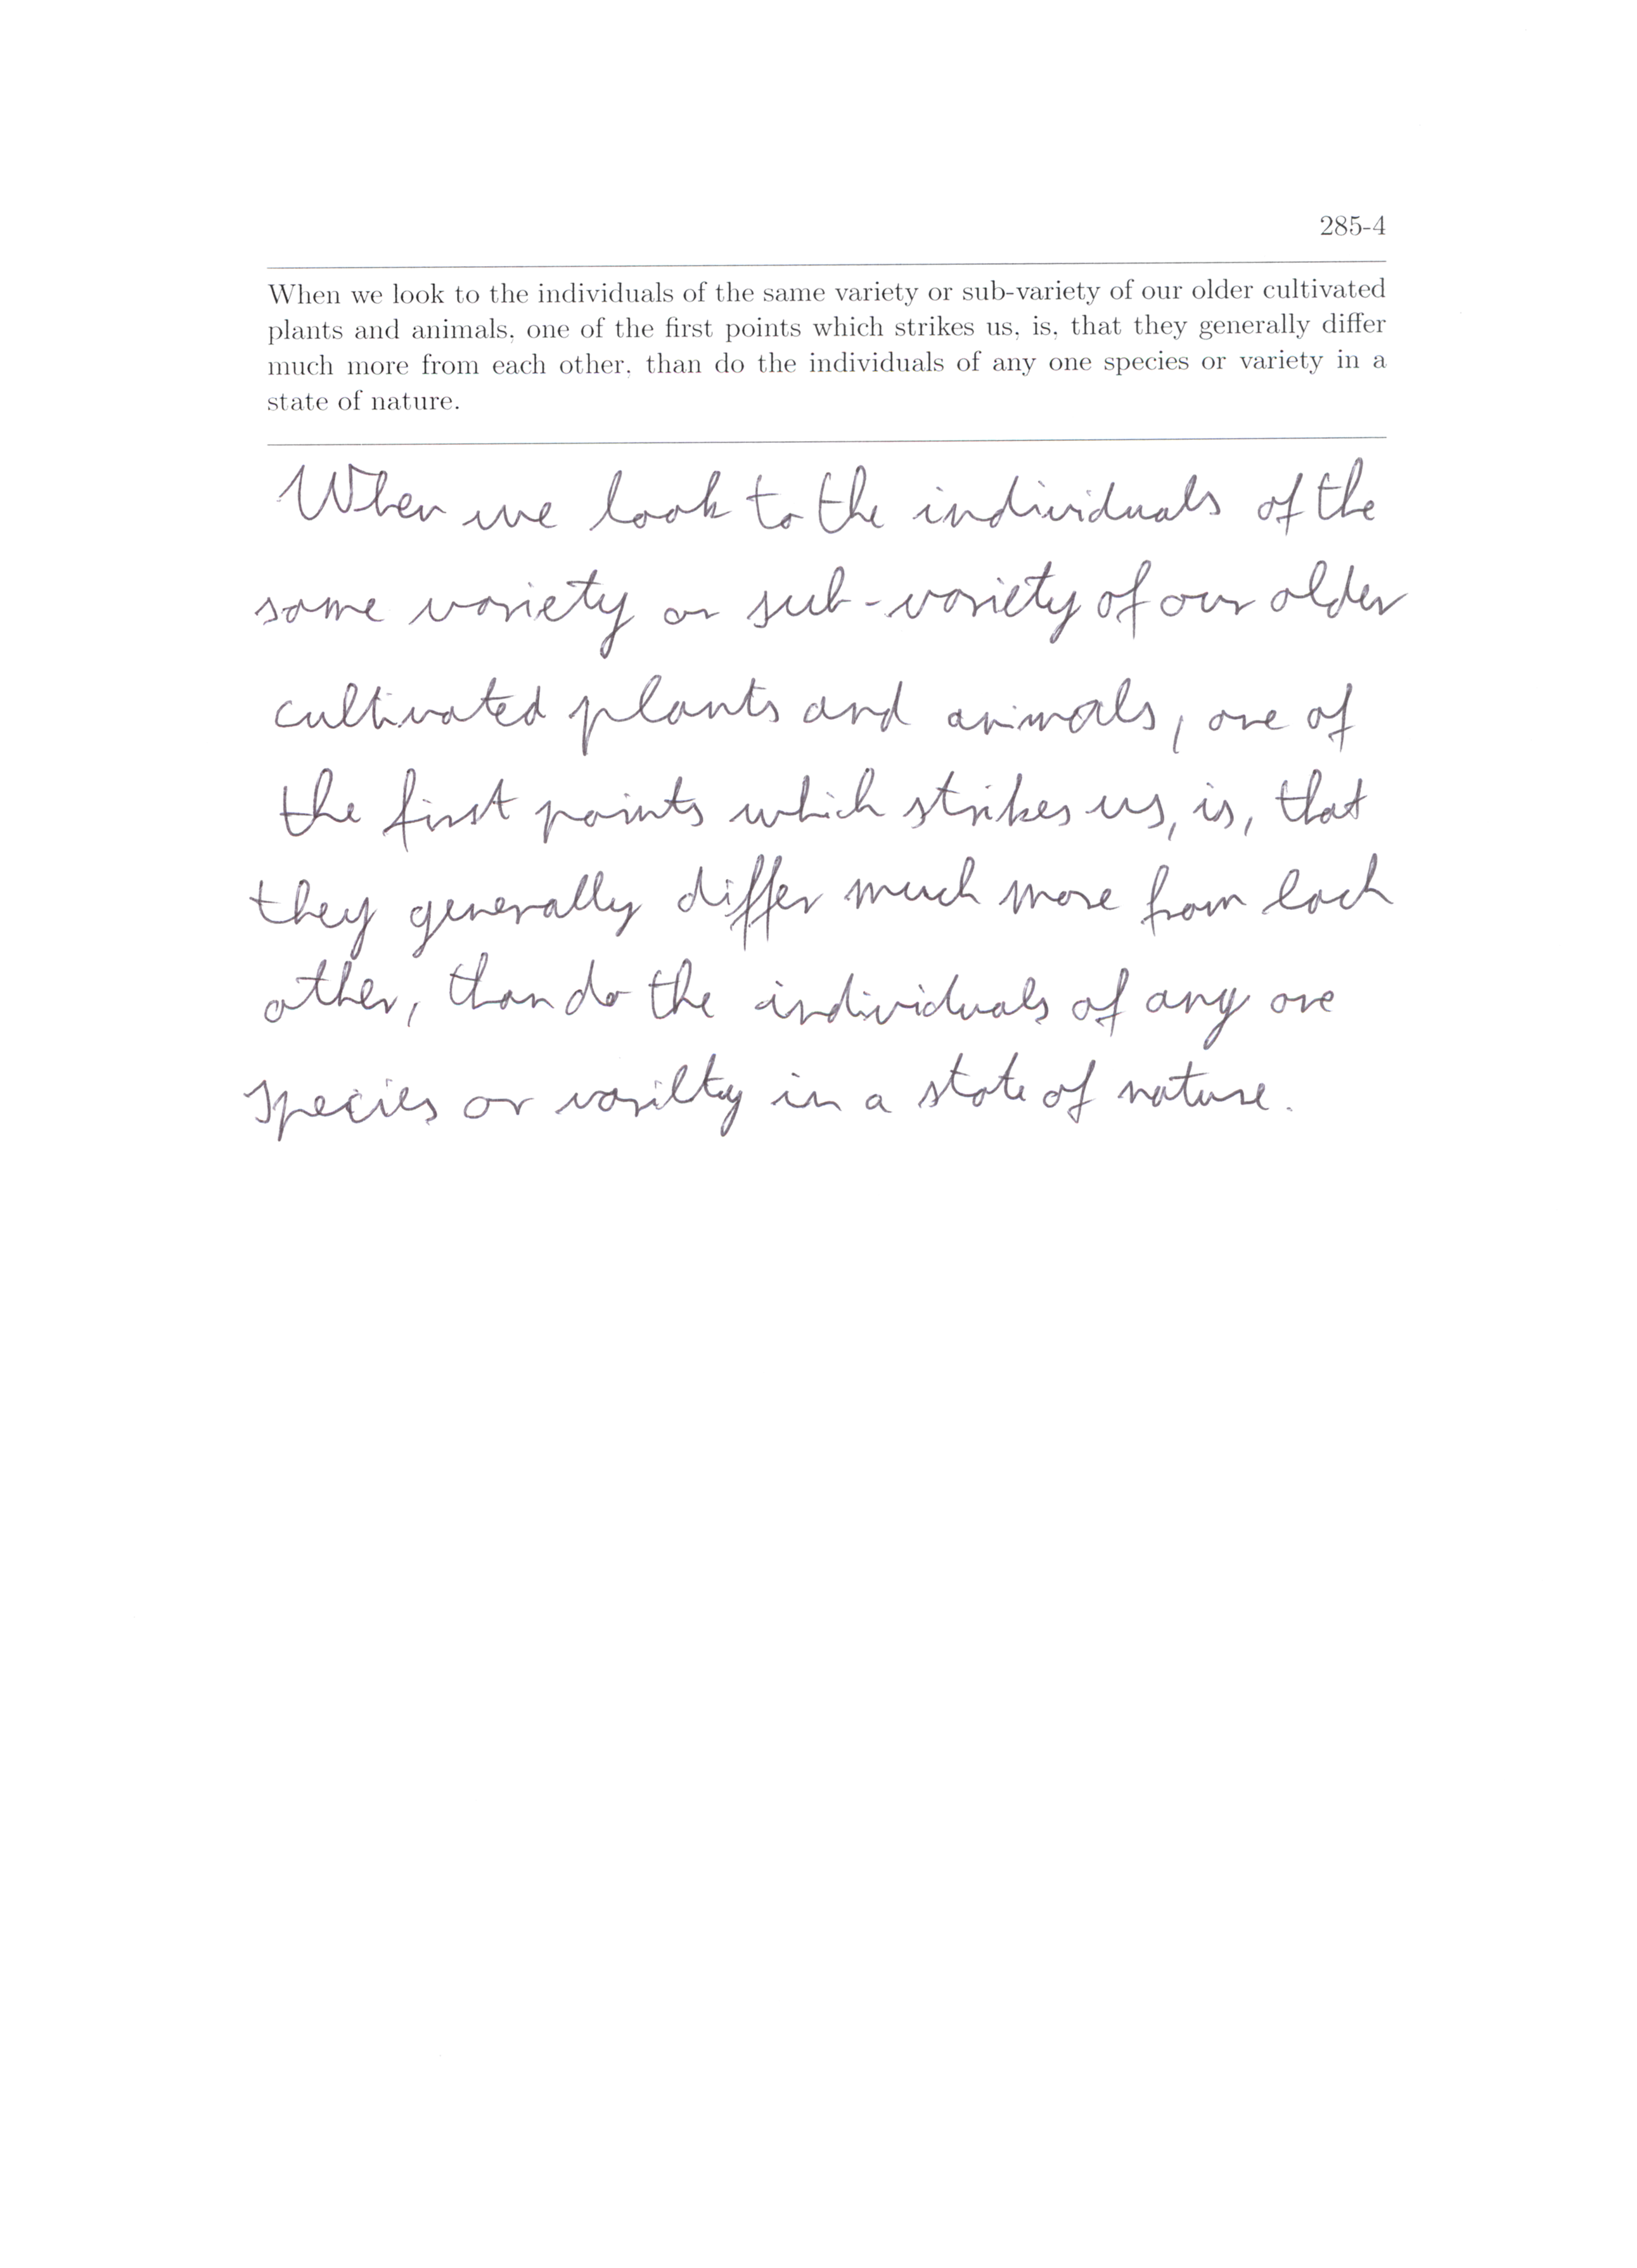 285-4
When we look to the individuals of the same variety or sub-variety of our older cultivated
plants and animals, one of the first points which strikes us, is, that they generally differ
much more from each other, than do the individuals of any one species or variety in a
state of nature.
When we look to the individuals of the
same variety or sub-variety of our older
cultivated plants and animals, one of
the first points which strikes us, is, that
they generally differ much more from each
other, than do the individuals of any one
species or variety in a state of nature.